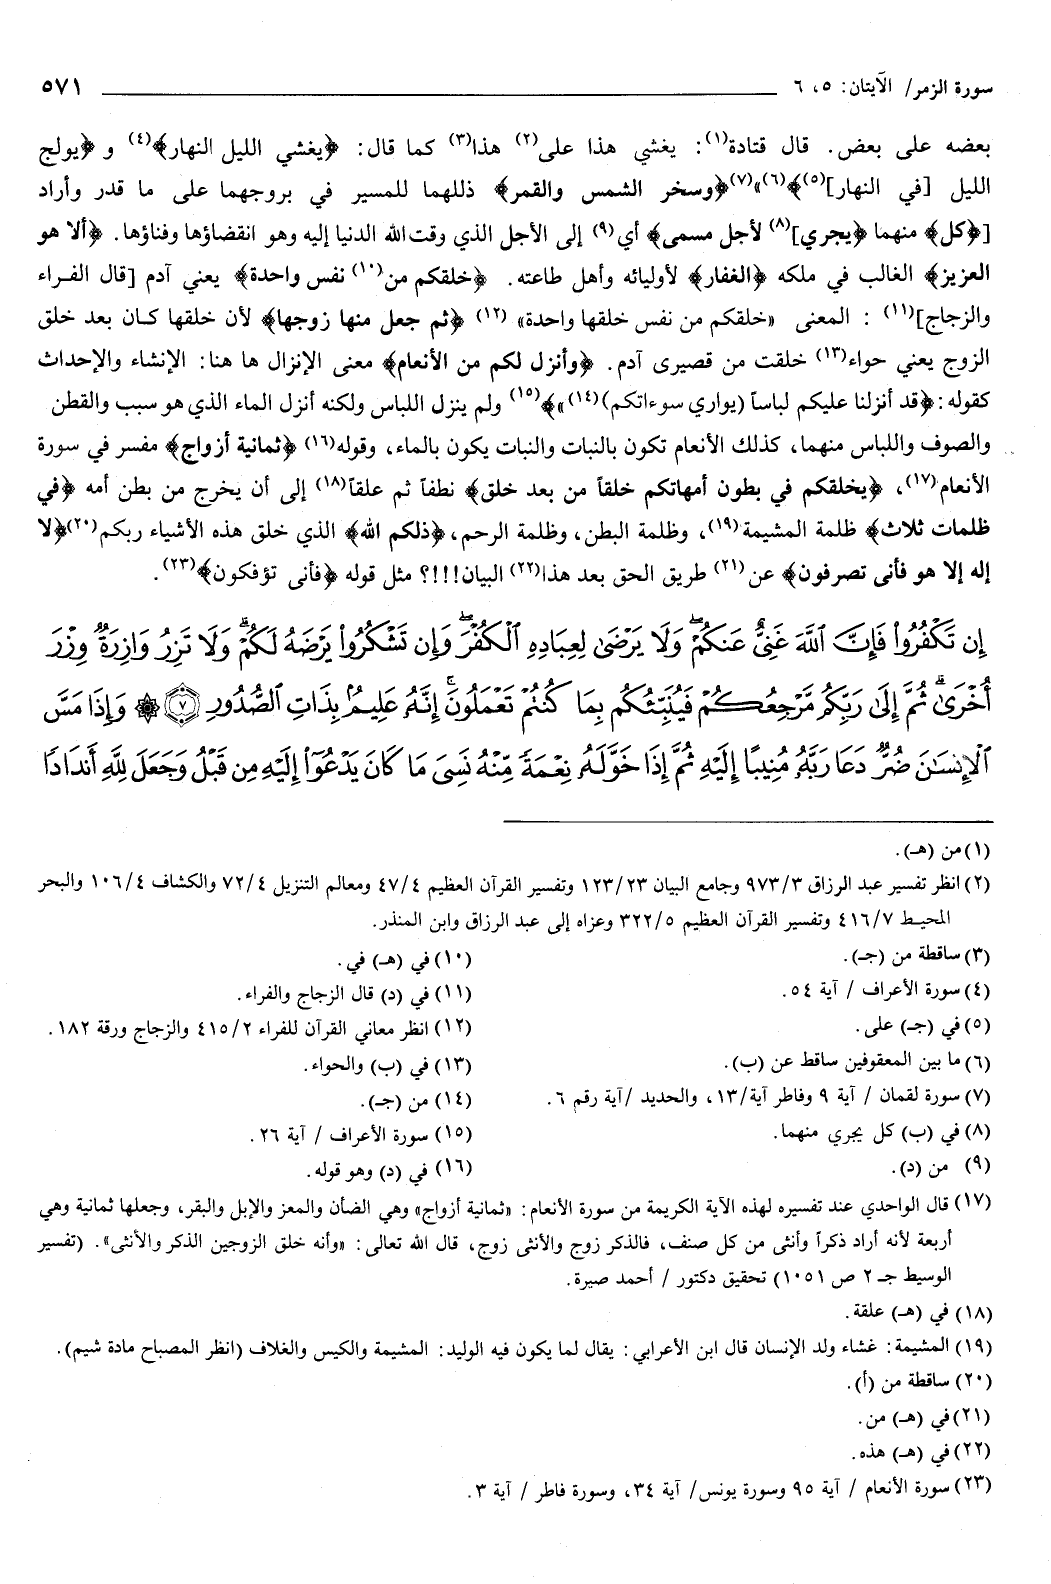 سورة الزمر/ الآيتان: ٥، ٦ ٥٧١
بعضه على بعض. قال قتادة(١): يغشي هذا على(٢) هذا(٣) كما قال: ﴿يغشي الليل النهار﴾(٤) و ﴿يولج
الليل [في النهار](٥)﴾(٦)»(٧)﴿وسخر الشمس والقمر﴾ ذللهما للمسير في بروجهما على ما قدر وأراد
[﴿كل﴾ منهما ﴿يجري](٨) لأجل مسمى﴾ أي(٩) إلى الأجل الذي وقت الله الدنيا إليه وهو انقضاؤها وفناؤها. ﴿ألا هو
العزيز﴾ الغالب في ملكه ﴿الغفار﴾ لأوليائه وأهل طاعته. ﴿خلقكم من(١٠) نفس واحدة﴾ يعني آدم [قال الفراء
والزجاج](١١) : المعنى «خلقكم من نفس خلقها واحدة» (١٢) ﴿ثم جعل منها زوجها﴾ لأن خلقها كان بعد خلق
الزوج يعني حواء(١٣) خلقت من قصيرى آدم. ﴿وأنزل لكم من الأنعام﴾ معنى الإنزال ها هنا: الإنشاء والإحداث
كقوله: ﴿قد أنزلنا عليكم لباساً (يواري سوءاتكم)(١٤)»﴾(١٥) ولم ينزل اللباس ولكنه أنزل الماء الذي هو سبب والقطن
والصوف واللباس منهما، كذلك الأنعام تكون بالنبات والنبات يكون بالماء، وقوله(١٦) ﴿ثمانية أزواج﴾ مفسر في سورة
الأنعام(١٧)، ﴿يخلقكم في بطون أمهاتكم خلقاً من بعد خلق﴾ نطفاً ثم علقاً(١٨) إلى أن يخرج من بطن أمه ﴿في
ظلمات ثلاث﴾ ظلمة المشيمة(١٩)، وظلمة البطن، وظلمة الرحم، ﴿ذلكم الله﴾ الذي خلق هذه الأشياء ربكم(٢٠)﴿لا
إله إلا هو فأنى تصرفون﴾ عن(٢١) طريق الحق بعد هذا(٢٢) البيان!!!؟ مثل قوله ﴿فأنى تؤفكون﴾(٢٣).
إِن تَكْفُرُوا۟ فَإِنَّ ٱللَّهَ غَنِىٌّ عَنكُمْ ۖ وَلَا يَرْضَىٰ لِعِبَادِهِ ٱلْكُفْرَ ۖ وَإِن تَشْكُرُوا۟ يَرْضَهُ لَكُمْ ۗ وَلَا تَزِرُ وَازِرَةٌ وِزْرَ
أُخْرَىٰ ۗ ثُمَّ إِلَىٰ رَبِّكُم مَّرْجِعُكُمْ فَيُنَبِّئُكُم بِمَا كُنتُمْ تَعْمَلُونَ ۚ إِنَّهُۥ عَلِيمٌۢ بِذَاتِ ٱلصُّدُورِ ٧ ۞ وَإِذَا مَسَّ
ٱلْإِنسَـٰنَ ضُرٌّ دَعَا رَبَّهُۥ مُنِيبًا إِلَيْهِ ثُمَّ إِذَا خَوَّلَهُۥ نِعْمَةً مِّنْهُ نَسِىَ مَا كَانَ يَدْعُوٓا۟ إِلَيْهِ مِن قَبْلُ وَجَعَلَ لِلَّهِ أَندَادًا
(١) من (هـ).
(٢) انظر تفسير عبد الرزاق ٩٧٣/٣ وجامع البيان ١٢٣/٢٣ وتفسير القرآن العظيم ٤٧/٤ ومعالم التنزيل ٧٢/٤ والكشاف ١٠٦/٤ والبحر
المحيط ٤١٦/٧ وتفسير القرآن العظيم ٣٢٢/٥ وعزاه إلى عبد الرزاق وابن المنذر.
(٣) ساقطة من (جـ).
(٤) سورة الأعراف / آية ٥٤.
(٥) في (جـ) على.
(٦) ما بين المعقوفين ساقط عن (ب).
(٧) سورة لقمان / آية ٩ وفاطر آية/١٣، والحديد /آية رقم ٦.
(٨) في (ب) كل يجري منهما.
(٩) من (د).
(١٠) في (هـ) في.
(١١) في (د) قال الزجاج والفراء.
(١٢) انظر معاني القرآن للفراء ٤١٥/٢ والزجاج ورقة ١٨٢.
(١٣) في (ب) والحواء.
(١٤) من (جـ).
(١٥) سورة الأعراف / آية ٢٦.
(١٦) في (د) وهو قوله.
(١٧) قال الواحدي عند تفسيره لهذه الآية الكريمة من سورة الأنعام: «ثمانية أزواج» وهي الضأن والمعز والإبل والبقر، وجعلها ثمانية وهي
أربعة لأنه أراد ذكراً وأنثى من كل صنف، فالذكر زوج والأنثى زوج، قال الله تعالى: «وأنه خلق الزوجين الذكر والأنثى». (تفسير
الوسيط جـ ٢ ص ١٠٥١) تحقيق دكتور / أحمد صيرة.
(١٨) في (هـ) علقة.
(١٩) المشيمة: غشاء ولد الإنسان قال ابن الأعرابي: يقال لما يكون فيه الوليد: المشيمة والكيس والغلاف (انظر المصباح مادة شيم).
(٢٠) ساقطة من (أ).
(٢١) في (هـ) من.
(٢٢) في (هـ) هذه.
(٢٣) سورة الأنعام / آية ٩٥ وسورة يونس/ آية ٣٤، وسورة فاطر / آية ٣.